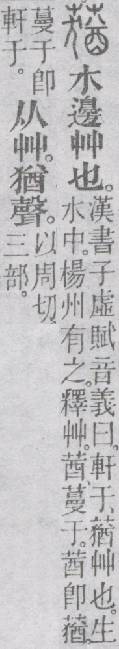 蕕水邊艸也。漢書子虛賦音義曰。軒于、蕕艸也。生
水中。楊州有之。釋艸。茜蔓于。茜卽蕕。
蔓于卽
軒于。从艸。猶聲。以周切
三部。